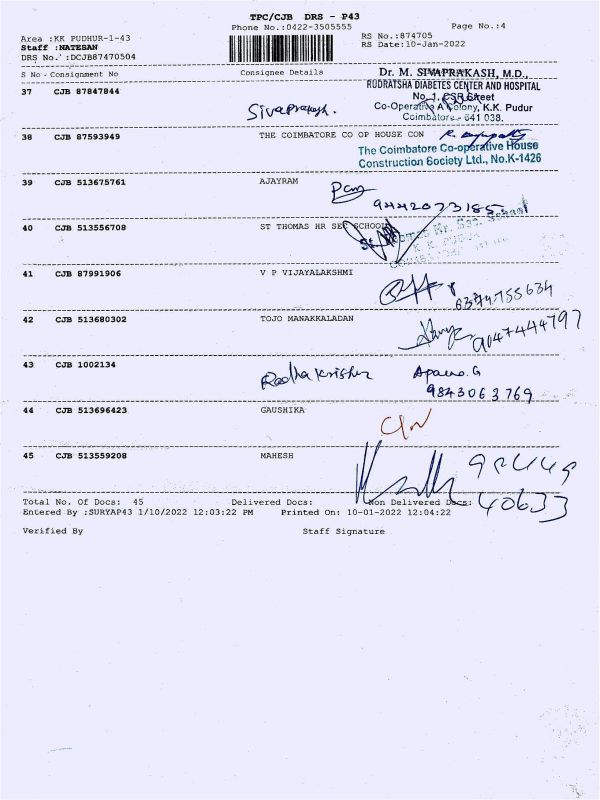 TPC/CJB DRS - P43
Phone No.:0422-3505555
Page No.:4
Area :KK PUDHUR-1-43
RS No.:874705
Staff :NATESAN
RS Date:10-Jan-2022
DRS No. :DCJB87470504
S No - Consignment No Consignee Details
Dr. M. SIVAPRAKASH, M.D.,
RUDRATSHA DIABETES CENTER AND HOSPITAL
No. 1, CSR Street
Co-Operative A Colony, K.K. Pudur
Coimbatore - 641 038.
37 CJB 87847844
Sivaprakash.
38 CJB 87593949 THE COIMBATORE CO OP HOUSE CON
The Coimbatore Co-operative House
Construction Society Ltd., No.K-1426
39 CJB 513675761 AJAYRAM
9442073185
40 CJB 513556708 ST THOMAS HR SEC SCHOOL
41 CJB 87991906 V P VIJAYALAKSHMI
6374755634
42 CJB 513680302 TOJO MANAKKALADAN
9047444797
43 CJB 1002134 Radha Krishn Aparna.G
9843063769
44 CJB 513696423 GAUSHIKA
45 CJB 513559208 MAHESH
40633
Total No. Of Docs: 45 Delivered Docs: Non Delivered Docs:
Entered By :SURYAP43 1/10/2022 12:03:22 PM Printed On: 10-01-2022 12:04:22
Verified By Staff Signature